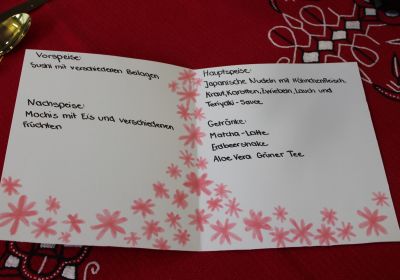 Vorspeise:
Sushi mit verschiedenen Beilagen
Nachspeise:
Mochis mit Eis und verschiedenen
Früchten
Hauptspeise:
Japanische Nudeln mit Hähnchenfleisch,
Kraut, Karotten, Zwiebeln, Lauch und
Teriyaki-Sauce
Getränke:
Matcha-Latte
Erdbeershake
Aloe Vera Grüner Tee